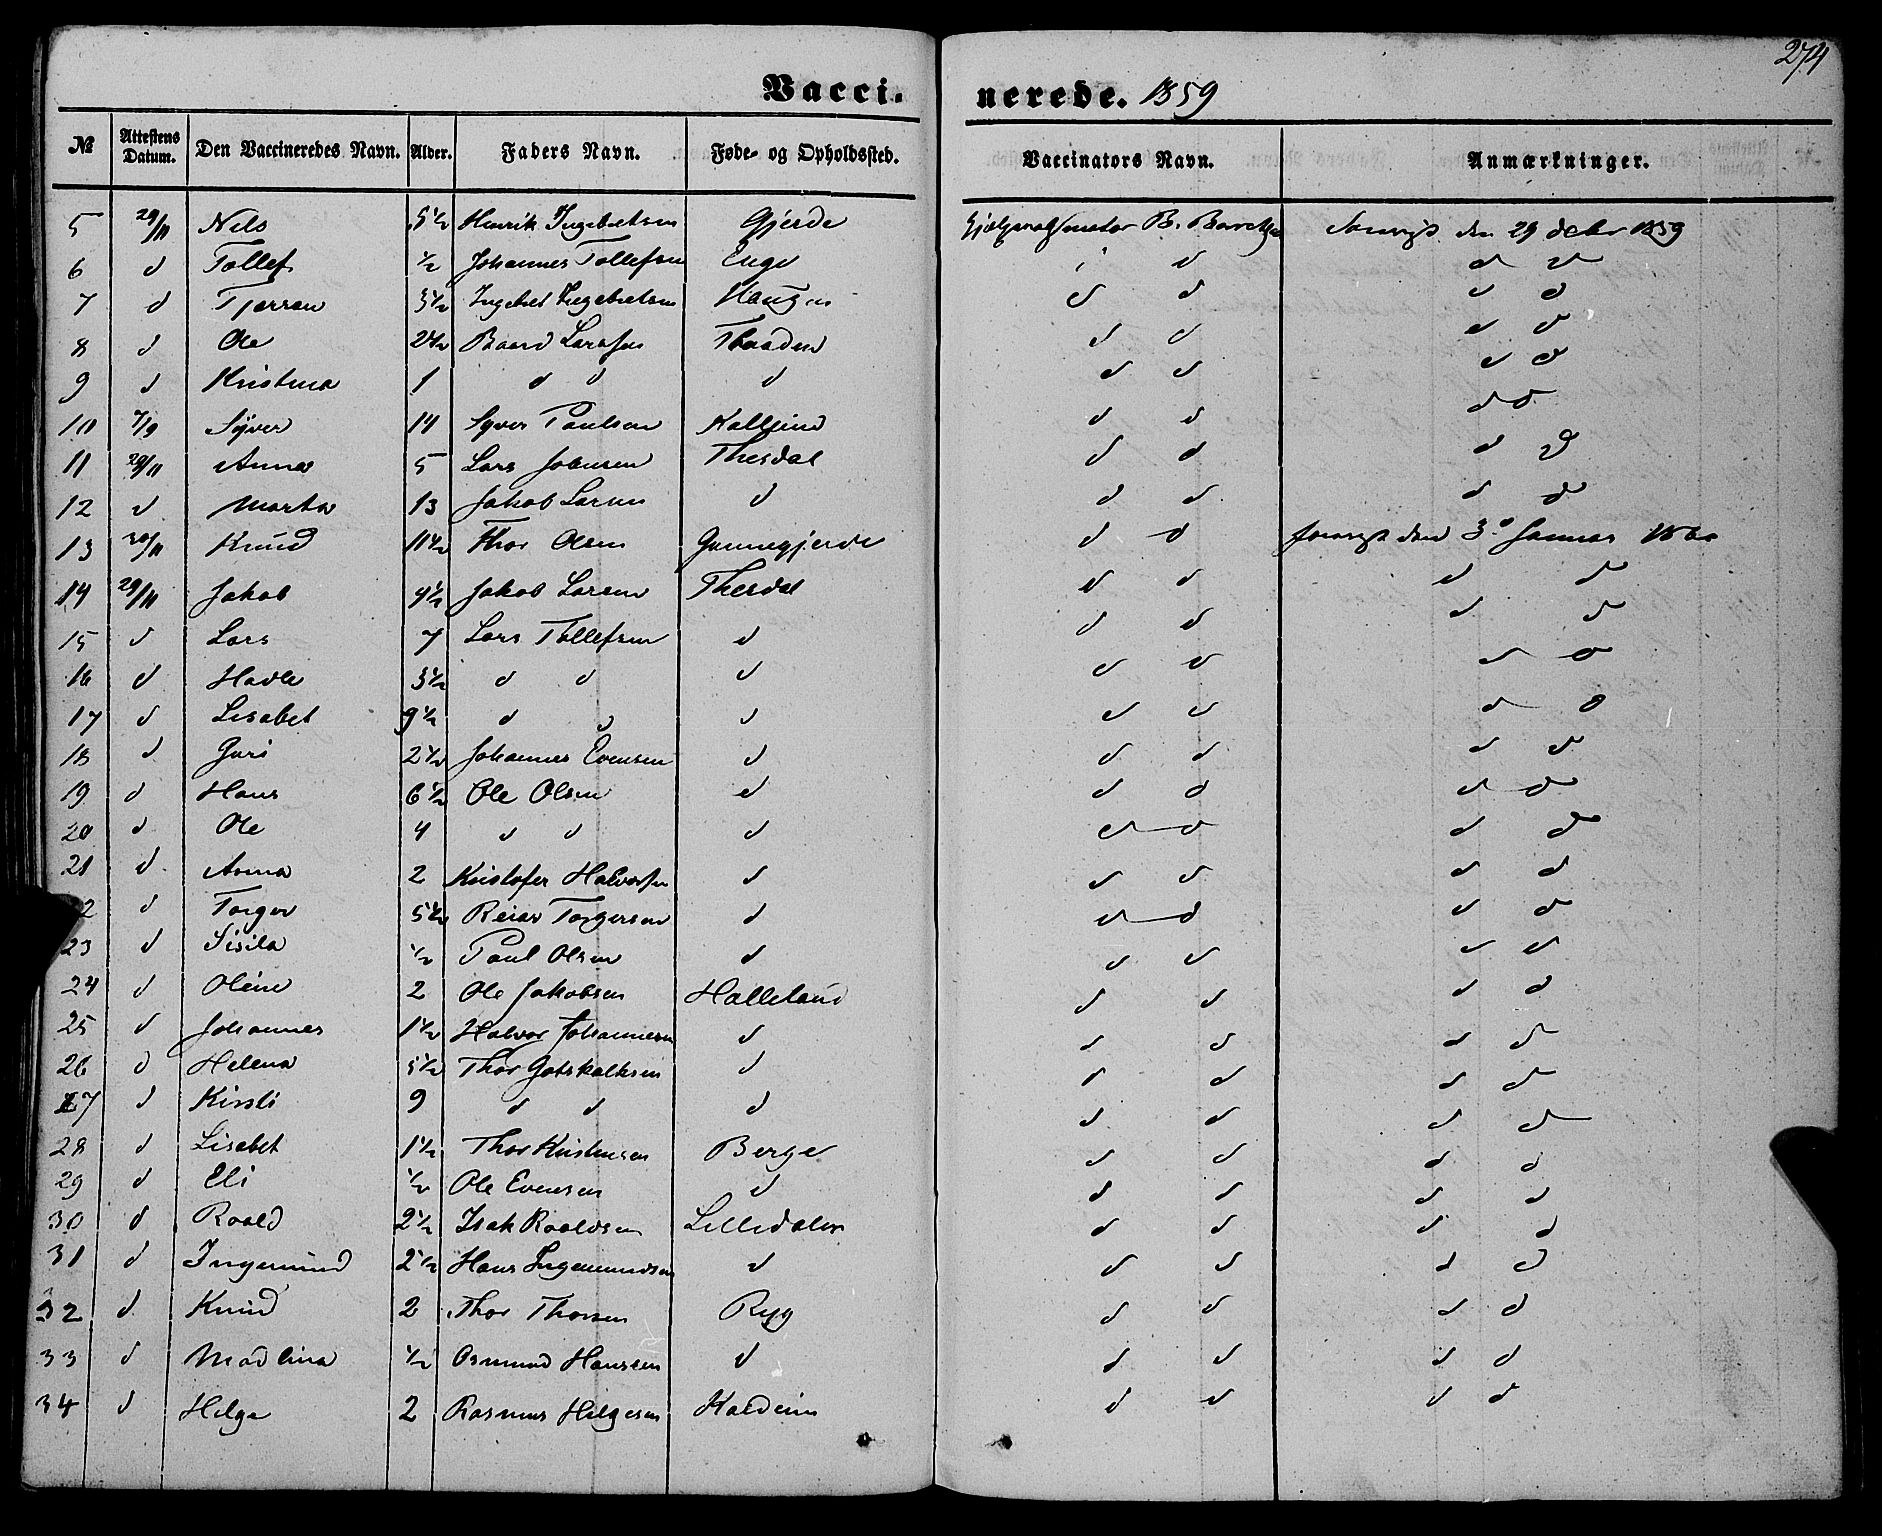 274
Vacci. nerede. 1859
№ Attestens Datum. Den Vaccineredes Navn. Alder. Faders Navn. Føde- og Opholdssted. Vaccinators Navn. Anmærkninger.
5 29/11 Nels 5 1/2 Henrik Ingebretsen Gjerde B. den 29 1859
6 d Tollef 1/2 Johannes Tollefsen Enge d d d
7 d 3 1/2 Ingebret Ingebretsen Haugen d d d d
8 d Ole 2 1/2 Baard Larssen d d d d
9 d Kristina 1 d d d d d d d
10 7/9 Syver 14 Syver Paulsen d d d d
11 29/11 Anna 5 Lars Thesdal d d d d
12 d Marta 13 Jakob Larsen d d d d d
13 Knud 11 1/2 Thor Olsen Gunnegjerde d d den 3 Januar 1860
14 29/11 Jakob 4 1/2 Jakob Larsen Thesdal d d d d
15 d Lars 7 Lars Tollefsen d d d d d
16 d Havle 3 1/2 d d d d d d d
17 d Lisabet 9 1/2 d d d d d d d
18 d Guri 2 1/2 Johannes Evensen d d d d d
19 d Hans 6 1/2 Ole Olsen d d d d d
20 d Ole 4 d d d d d d d
21 d Anna 2 Kristofer Halvorsen d d d d d
2 d Torger 5 1/2 Reiar Torgersen d d d d d
23 d Sisila 1/2 Paul Olsen d d d d d
24 d Oline 2 Ole Jakobsen Halleland d d d d
25 d Johannes 1 1/2 Halvor Johannesen d d d d d
26 d Helena 5 1/2 Thor Gotskalksen d d d d d
27 d Kirsti 9 d d d d d d d
28 d Lisabet 1 1/2 Thor Kristensen Berge d d d d
29 d Eli 1/2 Ole Evensen d d d d d
30 d Roald 2 1/2 Isak Roaldsen Lilledalen d d d d
31 d Ingemund 2 1/2 Hans Ingemundsen d d d d d
32 d Knud 2 Thor Thorsen Ryg d d d d
33 d Madlina 1/2 Osmund Hanssen d d d d d
34 d Helge 2 Rasmus Helgesen Kaldeim d d d d